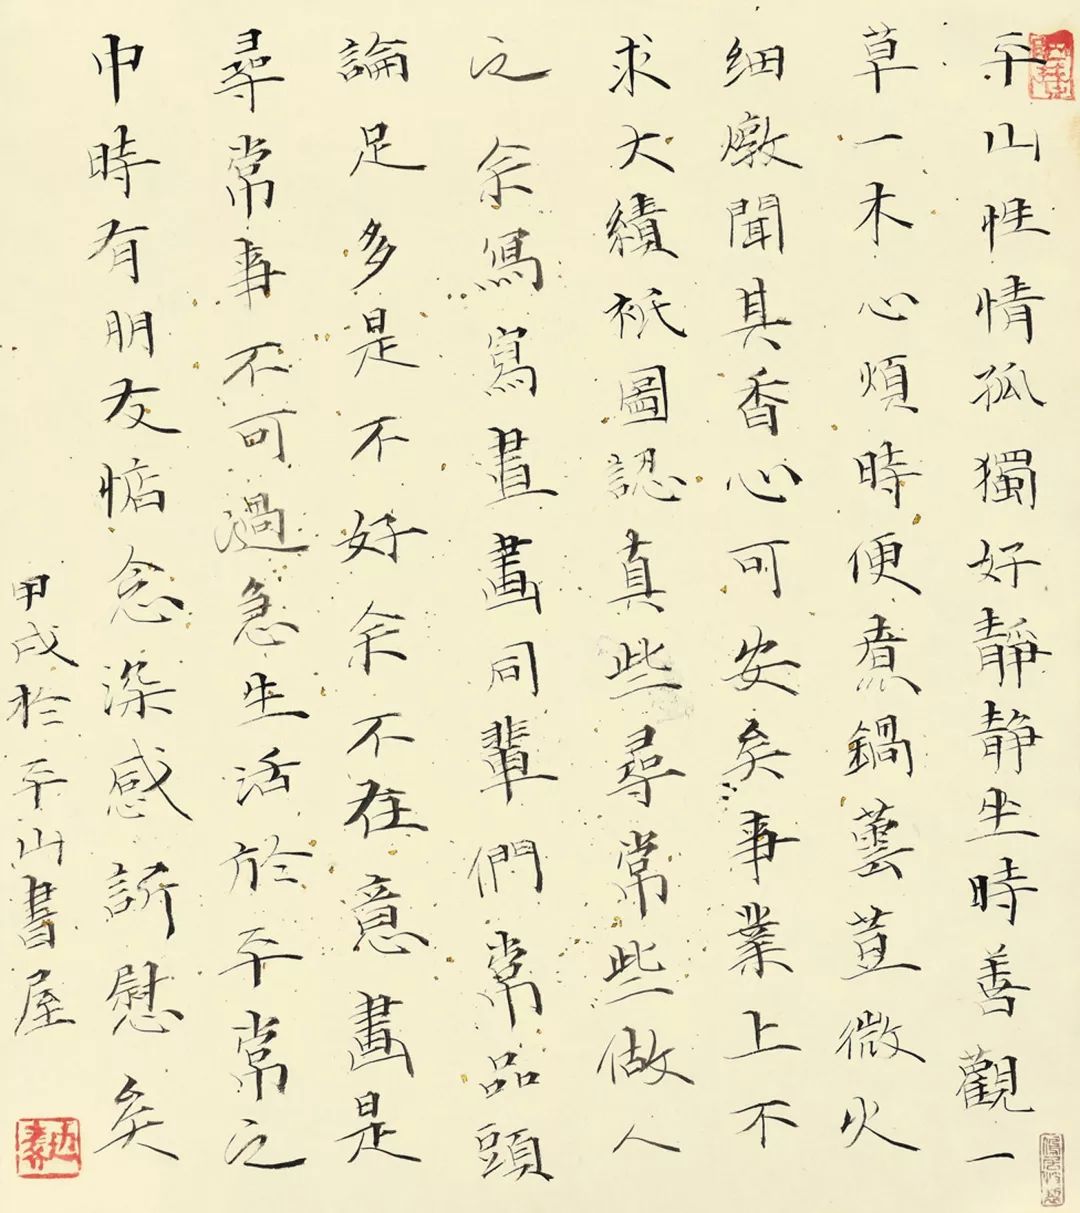 平山性情孤獨好靜静坐時善觀一
草一木心煩時便煮鍋蕓荁微火
细燉聞其香心可安矣事業上不
求大績衹圖認真些尋常些做人
之余寫寫畫畫同輩們常品頭
論足多是不好余不在意畫是
尋常事不可過急生活於平常之
中時有朋友惦念深感訢慰矣
甲戌於平山書屋